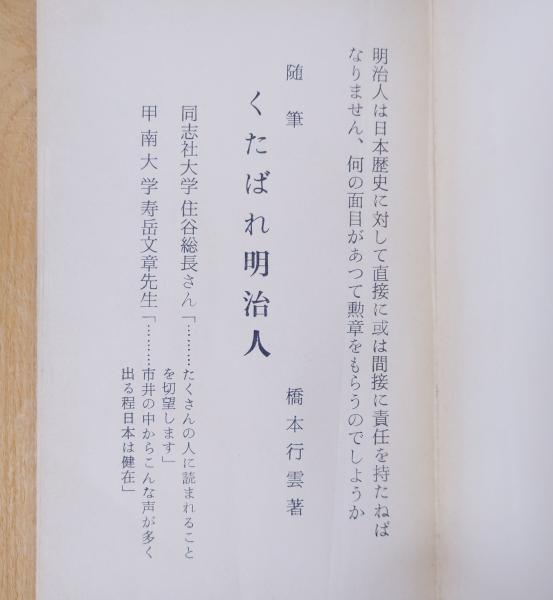 明治人は日本歴史に対して直接に或は間接に責任を持たねば
なりません、何の面目があつて勲章をもらうのでしようか
随筆
くたばれ明治人
橋本行雲著
同志社大学 住谷総長さん「………たくさんの人に読まれること
を切望します」
甲南大学 寿岳文章先生「………市井の中からこんな声が多く
出る程日本は健在」